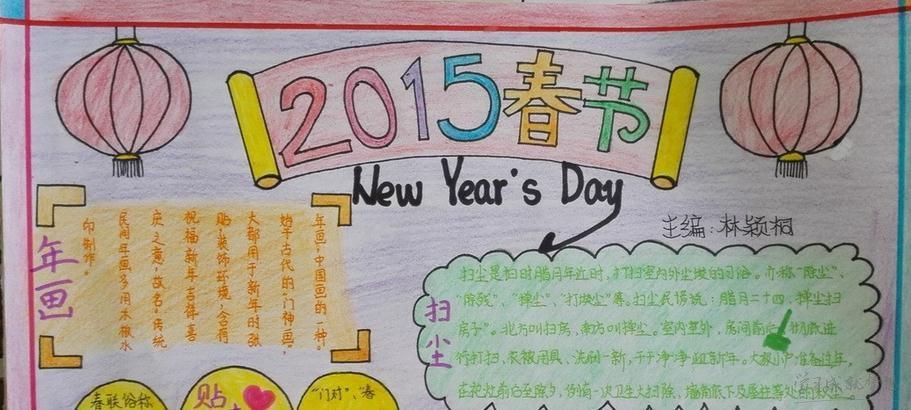 2015春节
New Year's Day
主编：林颖桐
年画
年画,中国画的一种。
始于古代的"门神画"。
大都用于新年时张
贴,装饰环境,含有
祝福新年吉祥喜
庆之意,故名。传统
民间年画多用木板水
印制作。
扫尘
扫尘是扫时腊月年近时,打扫室内外尘垢的习俗。亦称"除尘"、
"除残"、"掸尘"、"打埃尘"等。扫尘民谚说：腊月二十四,掸尘扫
房子"。北方叫扫房,南方叫掸尘。室内室外,房间
行打扫、衣被用具、洗刷一新,干干净净迎新年。大家小户准备过年,
在祀灶前后至除夕,例有一次卫生大扫除,墙角
春联俗称
贴
"门对"、春